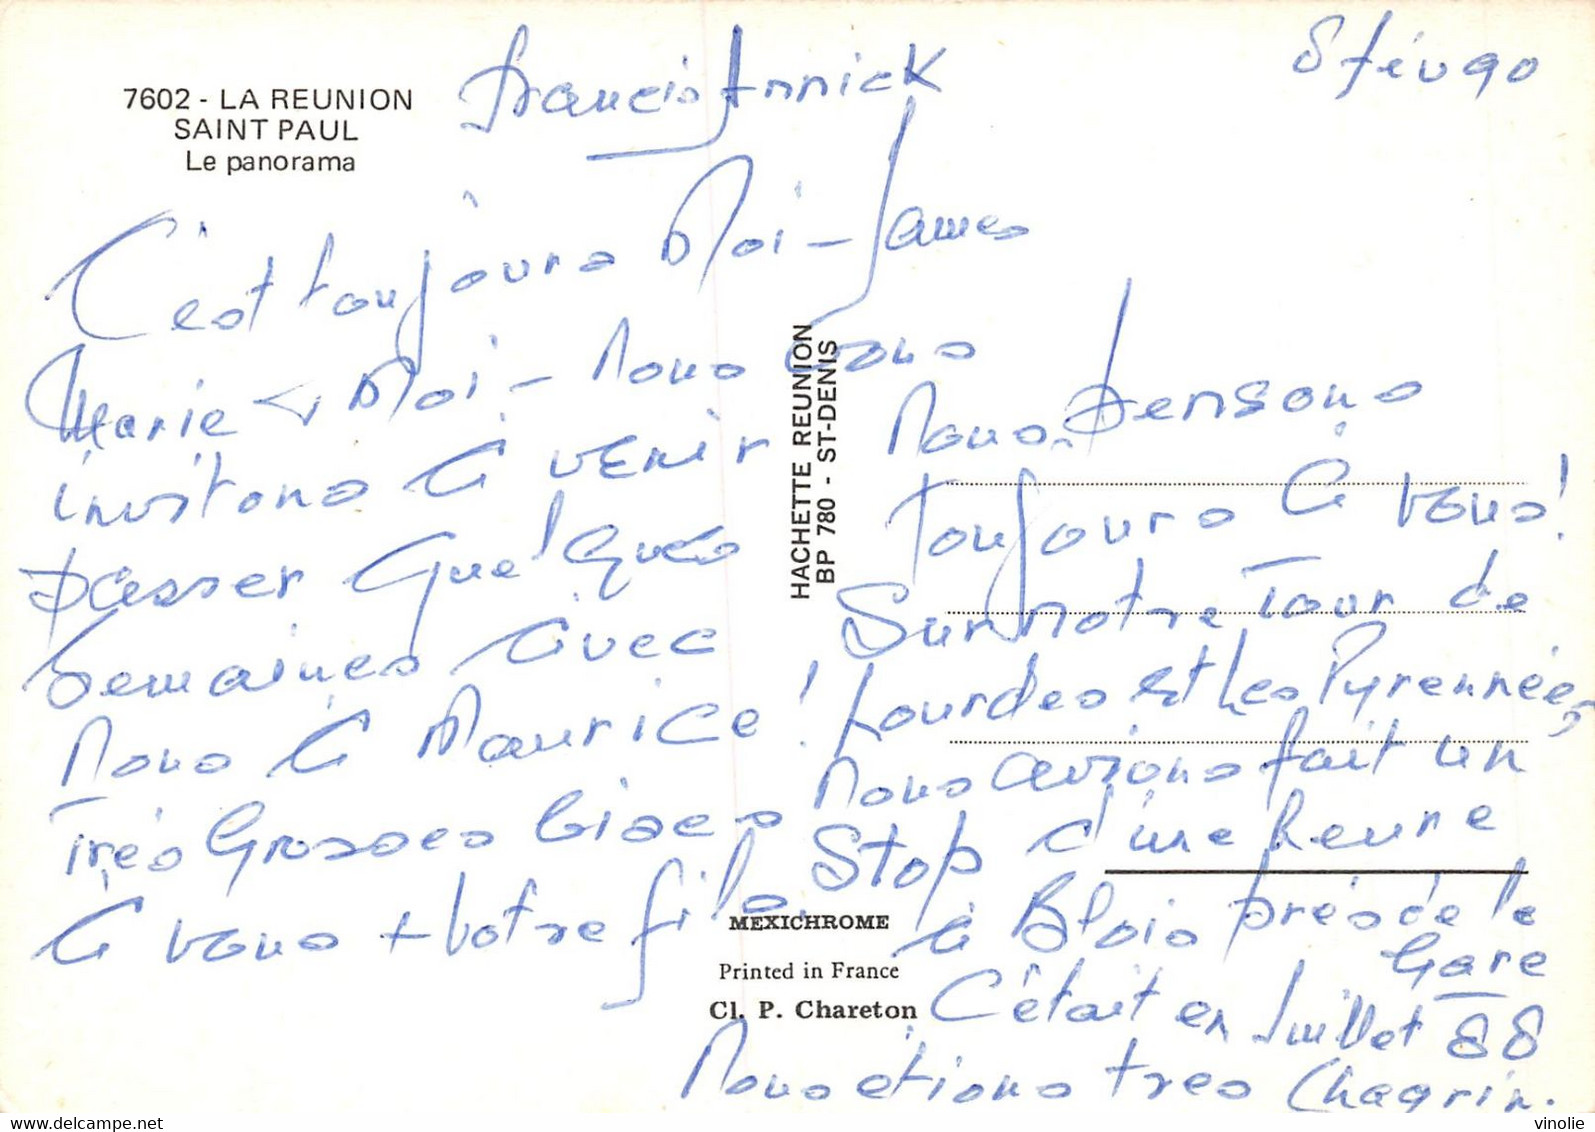 7602 - LA REUNION
SAINT PAUL
Le panorama
8 fév 90
Francis Annick
C'est toujours Moi - James
Marie & Moi - Nous vous
invitons à venir
passer quelques
semaines avec
nous à Maurice !
Très Grosses bises
à vous + votre fils.
HACHETTE REUNION
BP 780 - ST-DENIS
Nous pensons
toujours à vous !
Sur notre Tour de
Lourdes et les Pyrennées
nous avions fait un
Stop d'une heure
à Blois près de la
Gare
C'était en Juillet 88
Nous etions tres Chagrin.
MEXICHROME
Printed in France
Cl. P. Chareton
delcampe.net
vinolie